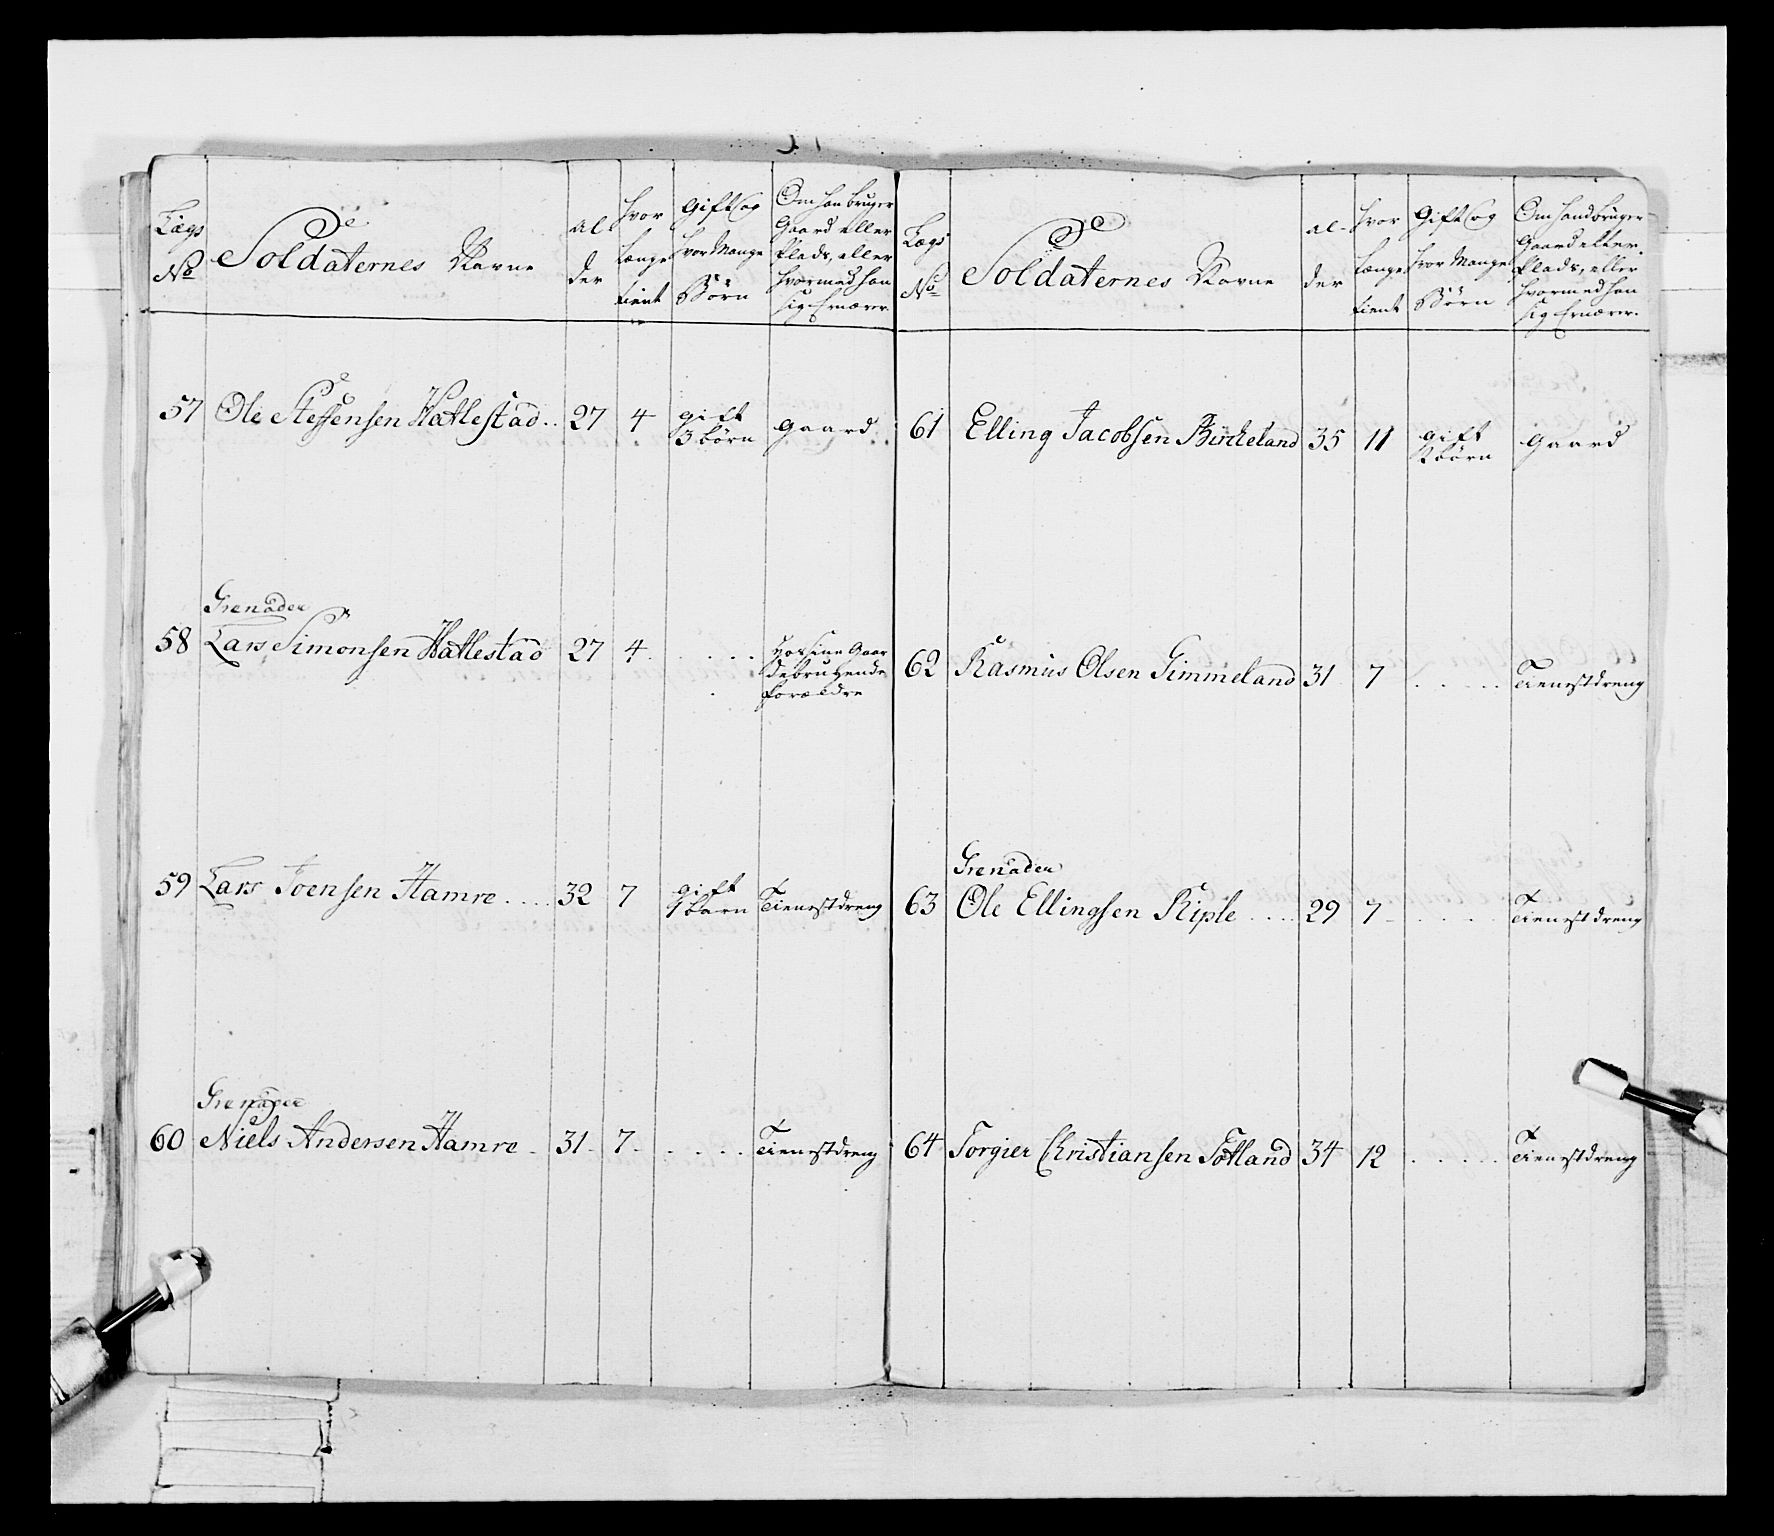 Lægs No | Soldaternes Navne | al der | hvor længe tient | Gift og hvor Mange Börn | Om han bruger Gaard eller Plads, eller hvormed han sig Ernærer.
57 | Ole Steffensen Hatlestad .. | 27 | 4 | gift 3 börn | gaard
Grenadeer
58 | Lars Simonsen Hatlestad | 27 | 4 | . . . . | hos sine Gaar debrugende forældre
59 | Lars Joensen Hamre .... | 32 | 7 | gift 1 barn | Tienestdreng
Grenadeer
60 | Niels Andersen Hamre . | 31 | 7 | . . . . . | Tienestdreng
Lægs No | Soldaternes Navne | al- der | hvor længe tient | Gift og hvor Mange Börn | Om hand bruger Gaard eller Plads, eller hvormed han sig Ernærer.
61 | Elling Jacobsen Birkeland | 35 | 11 | gift börn | gaard
62 | Rasmus Olsen Gimmeland | 31 | 7 | . . . . . | Tienestdreng
Grenadeer
63 | Ole Ellingsen Riple .... | 29 | 7 | . . . . . | Tienestdreng
64 | Torgier Christiansen Totland | 34 | 12 | . . . . . | Tienestdreng